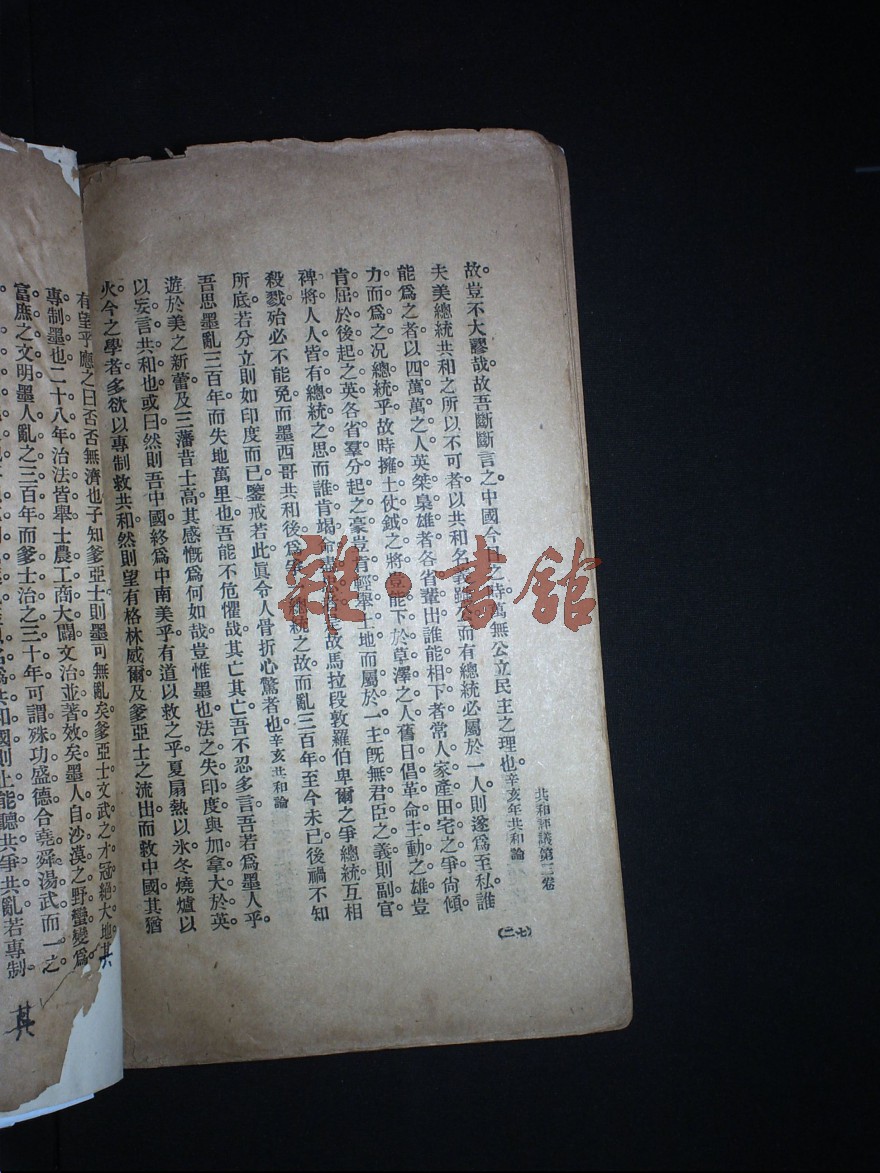 共和評議第三卷
(二七)
故。豈不大謬哉故吾斷斷言之中國今日之時萬無公立民主之理也辛亥年共和論
夫美總統共和之所以不可者以共和名義雖公而有總統必屬於一人則遂爲至私誰
能爲之者以四萬萬之人英桀梟雄者各省輩出誰能相下者常人家產田宅之爭尙傾
力而爲之况總統乎故時擁土仗鉞之將豈能下於草澤之人舊日倡革命主動之雄豈
肯屈於後起之英各省羣分起之豪豈肯輕舉土地而屬於一主旣無君臣之義則副官
裨將人人皆有總統之思而誰肯竭命盡 故馬拉段敦羅伯卑爾之爭總統互相
殺戮殆必不能免而墨西哥共和後爲爭 總統之故而亂三百年至今未已後禍不知
所底若分立則如印度而已鑒戒若此眞令人骨折心驚者也辛亥共和論
吾思墨亂三百年而失地萬里也吾能不危懼哉其亡其亡吾不忍多言吾若爲墨人乎
遊於美之新蕾及三藩昔士高其感慨爲何如哉豈惟墨也法之失印度與加拿大於英
以妄言共和也或曰然則吾中國終爲中南美乎有道以救之乎夏扇熱以氷冬燒爐以
火今之學者多欲以專制救共和然則望有格林威爾及爹亞士之流出而救中國其猶
有望乎應之曰否否無濟也子知爹亞士則墨可無亂矣爹亞士文武之才冠絕大地其
專制墨也二十八年治法皆舉士農工商大闢文治並著效矣墨人自沙漠之野蠻變爲
富庶之文明墨人亂之三百年而爹士治之三十年可謂殊功盛德合堯舜湯武而一之
名爲共和國則止能聽共爭共亂若專制
其
雜·書館